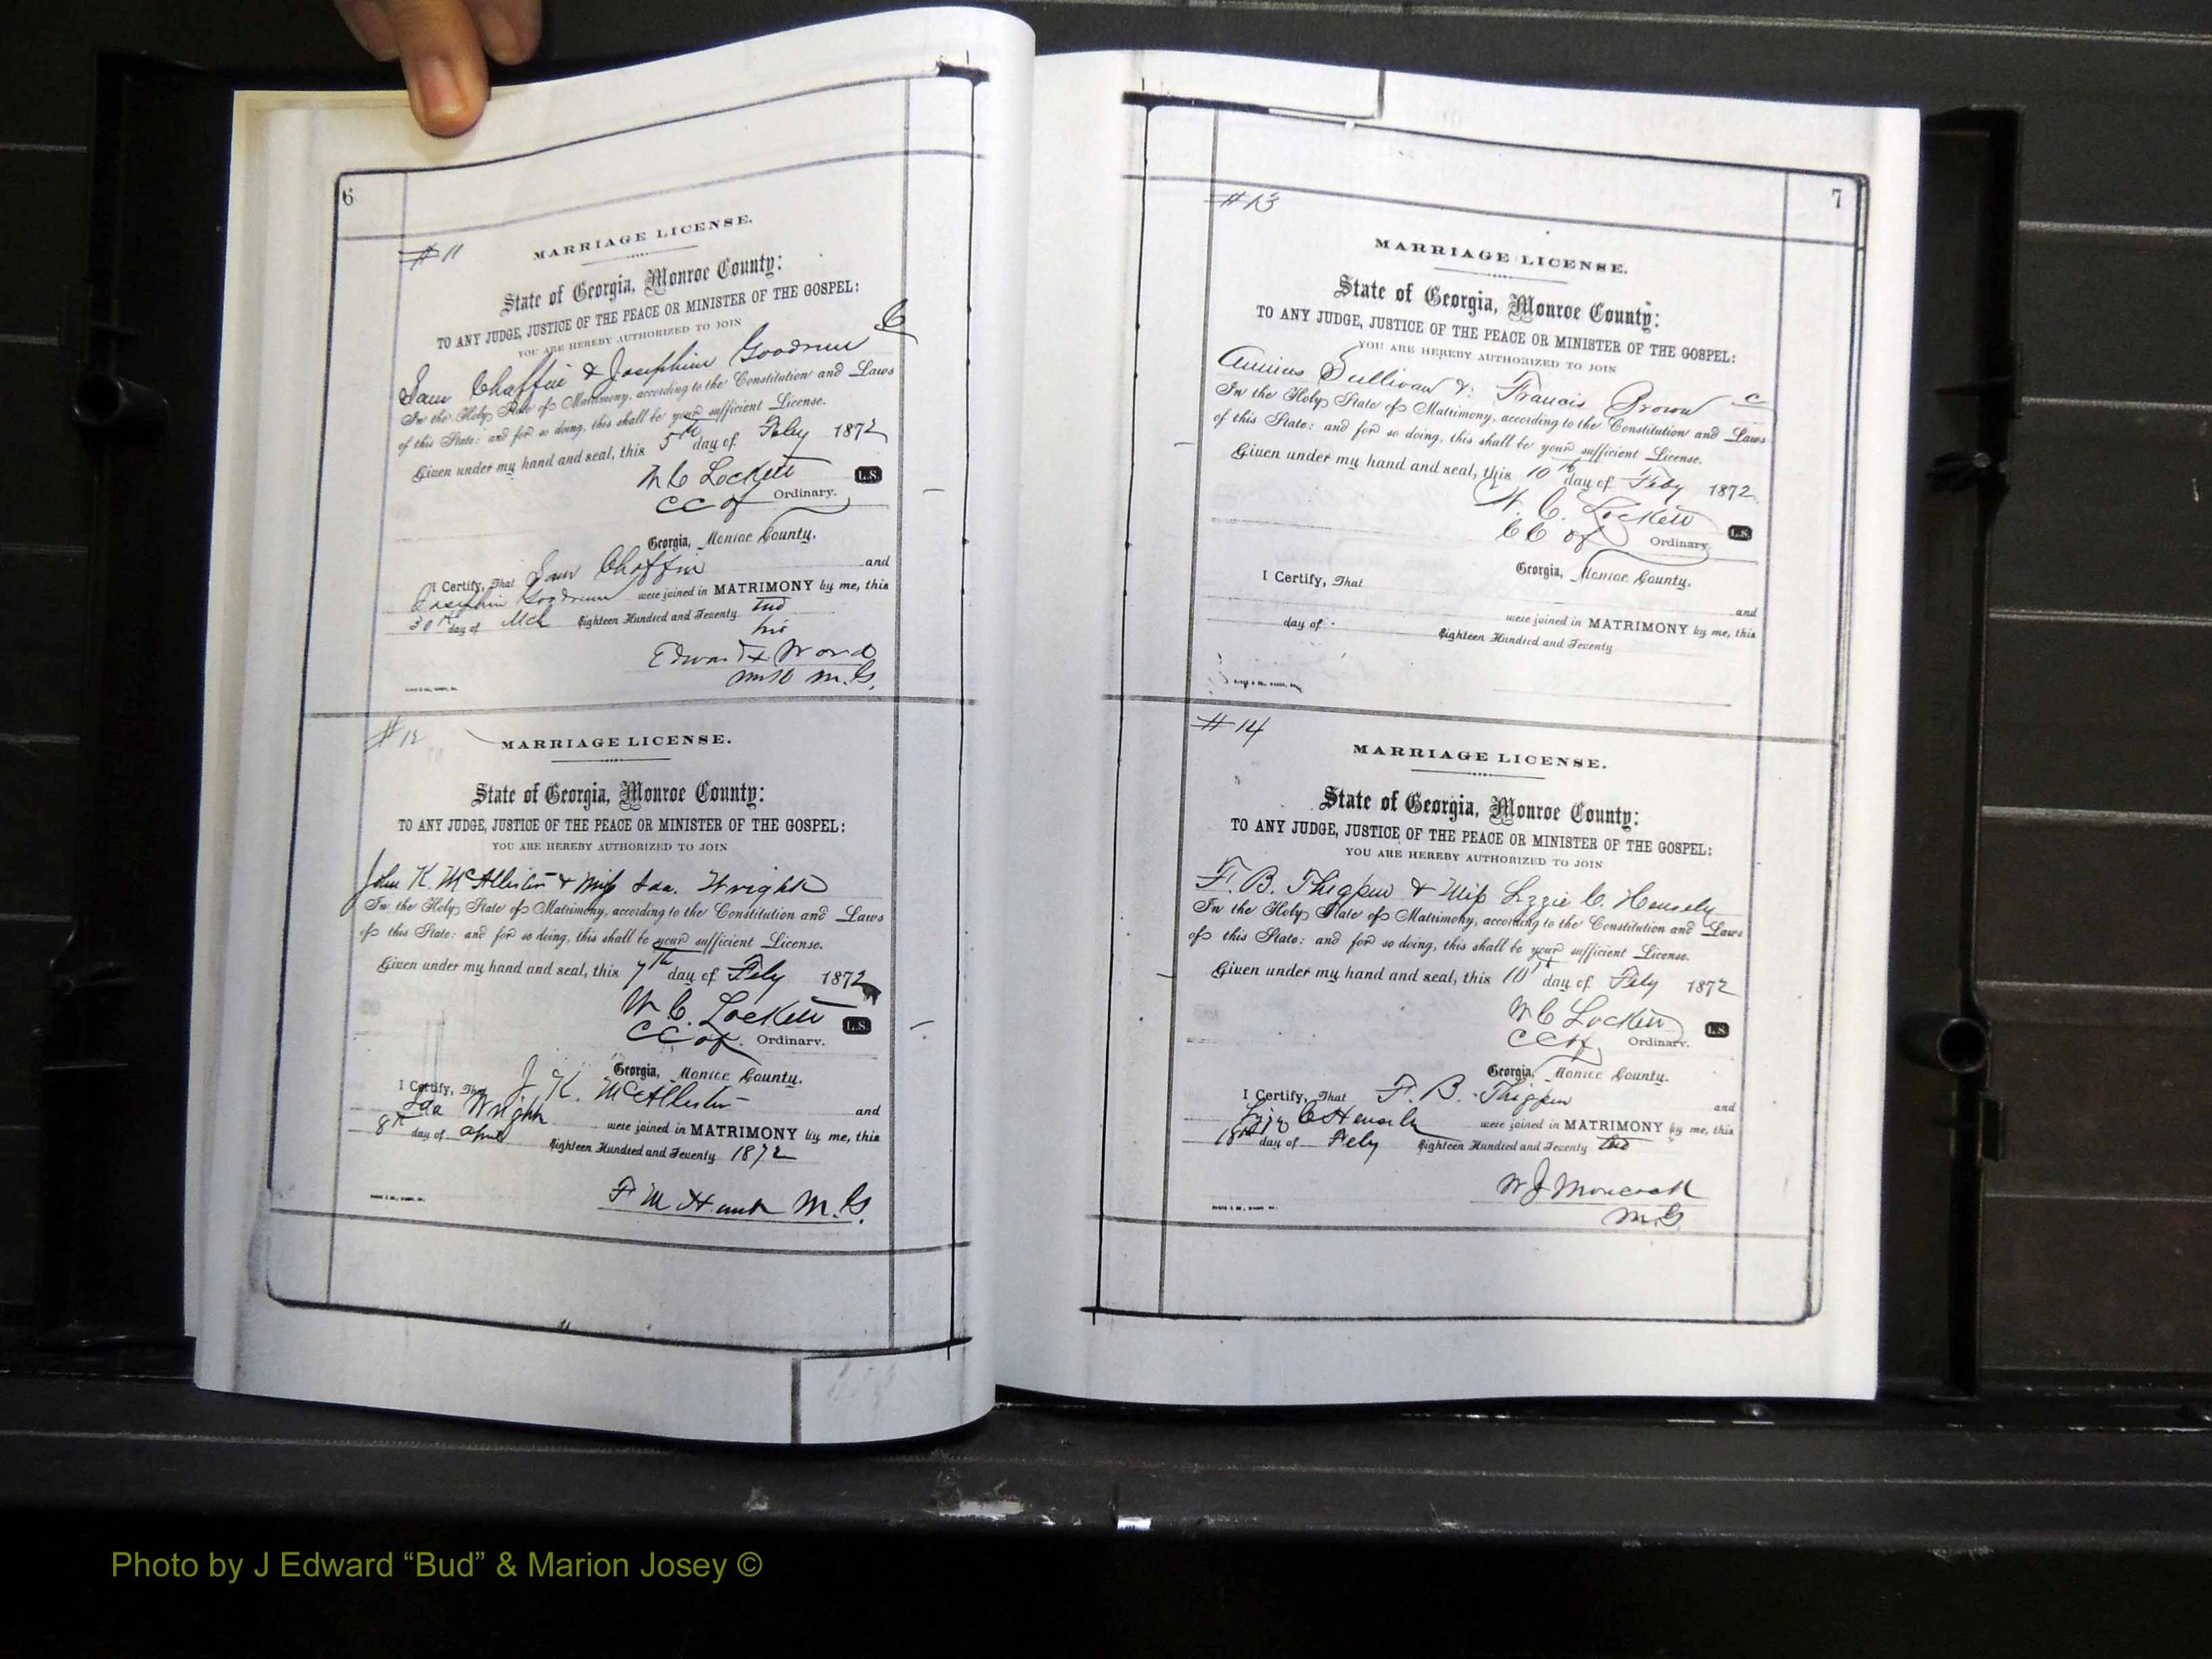 6
# 11
MARRIAGE LICENSE.
State of Georgia, Monroe County:
TO ANY JUDGE, JUSTICE OF THE PEACE OR MINISTER OF THE GOSPEL:
YOU ARE HEREBY AUTHORIZED TO JOIN
Sam Chaffin & Josephine Goodrum C
In the Holy State of Matrimony, according to the Constitution and Laws
of this State: and for so doing, this shall be your sufficient License.
Given under my hand and seal, this 5th day of Feby 1872
W C Lockett L.S.
CC of Ordinary.
Georgia, Monroe County.
I Certify, That Sam Chaffin and
Josephin Goodrum were joined in MATRIMONY by me, this
30th day of Mch Eighteen Hundred and Seventy two
his
Edward X Word
M.G.
# 12
MARRIAGE LICENSE.
State of Georgia, Monroe County:
TO ANY JUDGE, JUSTICE OF THE PEACE OR MINISTER OF THE GOSPEL:
YOU ARE HEREBY AUTHORIZED TO JOIN
John K. McAllister & Miss Ida. Wright
In the Holy State of Matrimony, according to the Constitution and Laws
of this State: and for so doing, this shall be your sufficient License.
Given under my hand and seal, this 7th day of Feby 1872
W C. Lockett L.S.
CC of. Ordinary.
Georgia, Monroe County.
I Certify, That J. K. McAllister and
Ida Wright were joined in MATRIMONY by me, this
8th day of April Eighteen Hundred and Seventy 1872
F M Hunt M.G.
7
# 13
MARRIAGE LICENSE.
State of Georgia, Monroe County:
TO ANY JUDGE, JUSTICE OF THE PEACE OR MINISTER OF THE GOSPEL:
YOU ARE HEREBY AUTHORIZED TO JOIN
Sullivan & Francis Brown C
In the Holy State of Matrimony, according to the Constitution and Laws
of this State: and for so doing, this shall be your sufficient License.
Given under my hand and seal, this 10th day of Feby 1872
W. C. Lockett L.S.
CC of Ordinary.
Georgia, Monroe County.
I Certify, That
and
were joined in MATRIMONY by me, this
day of Eighteen Hundred and Seventy
# 14
MARRIAGE LICENSE.
State of Georgia, Monroe County:
TO ANY JUDGE, JUSTICE OF THE PEACE OR MINISTER OF THE GOSPEL:
YOU ARE HEREBY AUTHORIZED TO JOIN
F. B. Thigpen & Miss Lizzie C. Hensely
In the Holy State of Matrimony, according to the Constitution and Laws
of this State: and for so doing, this shall be your sufficient License.
Given under my hand and seal, this 10th day of Feby 1872
W C Lockett L.S.
CC of Ordinary.
Georgia, Monroe County.
I Certify, That F. B. Thigpen and
C Hensely were joined in MATRIMONY by me, this
day of Feby Eighteen Hundred and Seventy two
W J
M.G.
Photo by J Edward “Bud” & Marion Josey ©